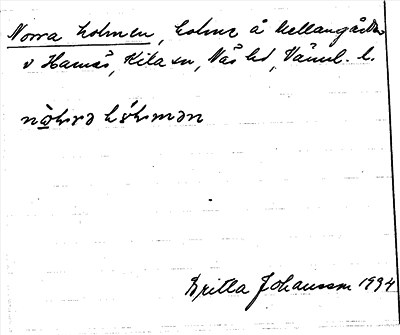 Norra holmen, holme å Mellangården
v Hamås, Kila sn, Näs hd, Värml. l.
Britta Johansson 1934